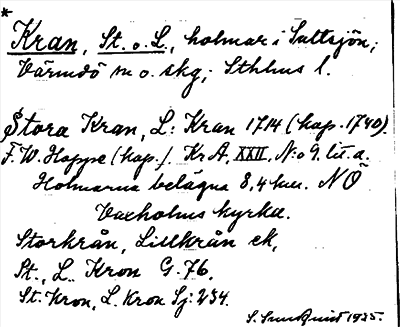 *
Kran, St. o. L., holmar i Saltsjön;
Värmdö m o. skg; Sthlms l.
Stora Kran, L: Kran 1714 (kap. 1740).
F. W. Hoppe (kap.). Kr A, XXII, N:o 9. lit. a.
Holmarna belägna 8,4 km. NÖ
Vaxholms kyrka.
Storkrån, Lillkrån ek,
St., L. Kron G. 76.
St. Kron, L. Kron Sj: 234.
S. Sundquist 1935.